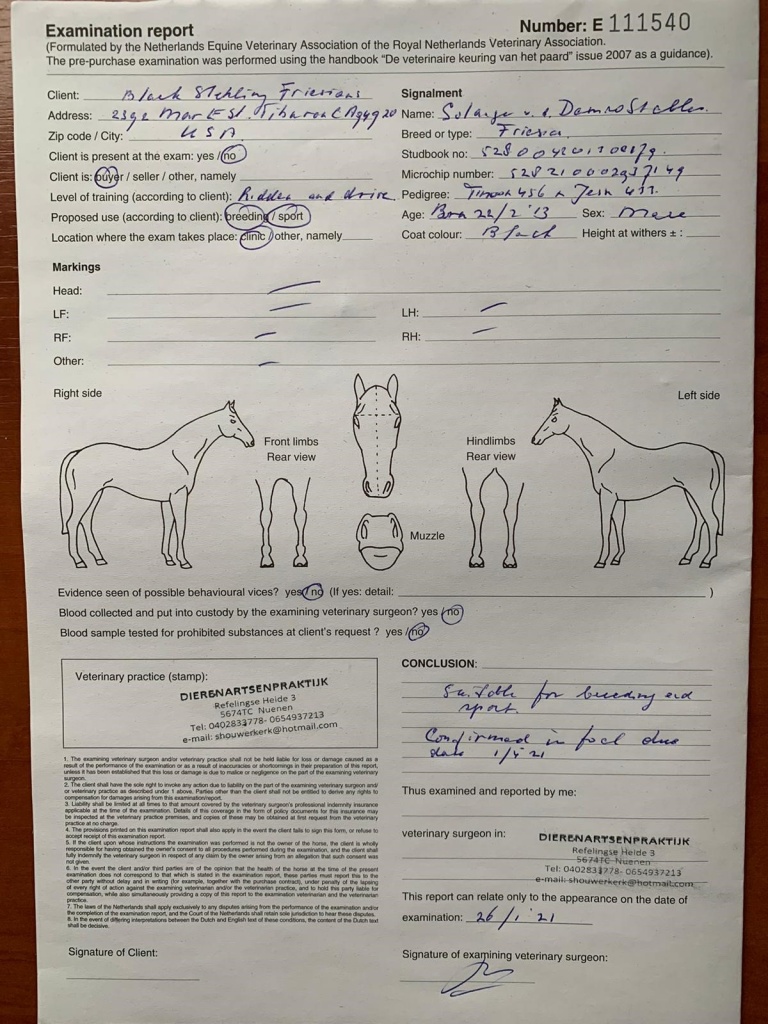 Examination report
Number: E 111540
(Formulated by the Netherlands Equine Veterinary Association of the Royal Netherlands Veterinary Association.
The pre-purchase examination was performed using the handbook “De veterinaire keuring van het paard” issue 2007 as a guidance).
Client: Black Sterling Friesians
Address: 2392 Mar
Zip code / City: USA
Client is present at the exam: yes / no
Client is: buyer / seller / other, namely
Level of training (according to client): Ridden and drive
Proposed use (according to client): breeding / sport
Location where the exam takes place: clinic / other, namely
Signalment
Name: Solange v.d.
Breed or type: Friesian
Studbook no:
Microchip number:
Pedigree: 456 x
Age: Born 22/2 '13 Sex: Mare
Coat colour: Black Height at withers ± :
Markings
Head:
LF:
LH:
RF:
RH:
Other:
Right side
Left side
Front limbs
Rear view
Hindlimbs
Rear view
Muzzle
Evidence seen of possible behavioural vices? yes / no (If yes: detail: )
Blood collected and put into custody by the examining veterinary surgeon? yes / no
Blood sample tested for prohibited substances at client's request ? yes / no
Veterinary practice (stamp):
DIERENARTSENPRAKTIJK
Refelingse Heide 3
5674TC Nuenen
Tel: 0402831778- 0654937213
e-mail: shouwerkerk@hotmail.com
1. The examining veterinary surgeon and/or veterinary practice shall not be held liable for loss or damage caused as a
result of the performance of the examination or as a result of inaccuracies or shortcomings in their preparation of this report,
unless it has been established that this loss or damage is due to malice or negligence on the part of the examining veterinary
surgeon.
2. The client shall have the sole right to invoke any action due to liability on the part of the examining veterinary surgeon and/
or veterinary practice as described under 1 above. Parties other than the client shall not be entitled to derive any rights to
compensation for damages arising from this examination/report.
3. Liability shall be limited at all times to that amount covered by the veterinary surgeon's professional indemnity insurance
applicable at the time of the examination. Details of this coverage in the form of policy documents for this insurance may
be inspected at the veterinary practice premises, and copies of these may be obtained at first request from the veterinary
practice at no charge.
4. The provisions printed on this examination report shall also apply in the event the client fails to sign this form, or refuse to
accept receipt of this examination report.
5. If the client upon whose instructions the examination was performed is not the owner of the horse, the client is wholly
responsible for having obtained the owner's consent to all procedures performed during the examination, and the client shall
fully indemnify the veterinary surgeon in respect of any claim by the owner arising from an allegation that such consent was
not given.
6. In the event the client and/or third parties are of the opinion that the health of the horse at the time of the present
examination does not correspond to that which is stated in the examination report, these parties must report this to the
other party without delay and in writing (for example, together with the purchase contract), under penalty of the lapsing
of every right of action against the examining veterinarian and/or the veterinary practice, and to hold this party liable for
compensation, while also simultaneously providing a copy of this report to the examination veterinarian and the veterinary
practice.
7. The laws of the Netherlands shall apply exclusively to any disputes arising from the performance of the examination and/or
the completion of the examination report, and the Court of the Netherlands shall retain sole jurisdiction to hear these disputes.
8. In the event of differing interpretations between the Dutch and English text of these conditions, the content of the Dutch text
shall be decisive.
Signature of Client:
CONCLUSION:
Suitable for breeding and
sport.
Confirmed in foal due
date 1/5 21
Thus examined and reported by me:
veterinary surgeon in:
DIERENARTSENPRAKTIJK
Refelingse Heide 3
5674TC Nuenen
Tel: 0402831778- 0654937213
e-mail: shouwerkerk@hotmail.com
This report can relate only to the appearance on the date of
examination: 26/1 '21
Signature of examining veterinary surgeon: